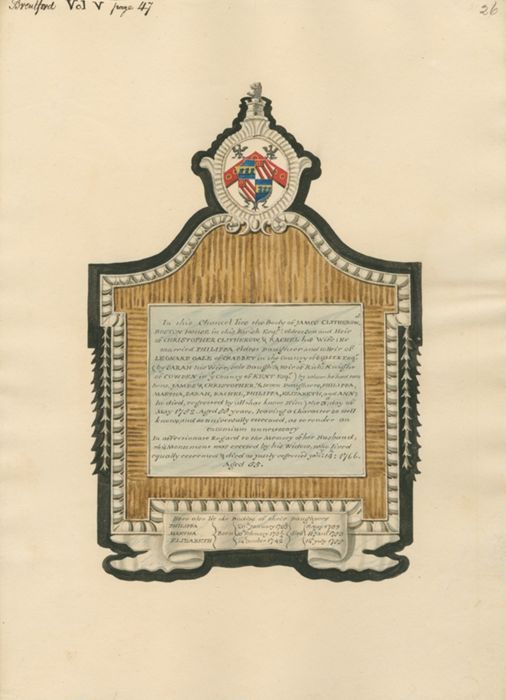 Brentford Vol V page 47
26
In this Chancel lies the Body of JAMES CLITHEROW, of
BOSTON HOUSE in this Parish Esqr. eldest Son and Heir
of CHRISTOPHER CLITHEROW, & RACHEL his Wife: He
married PHILIPPA eldest Daughter and coHeir of
LEONARD GALE of CRABBET in the County of SUSSEX Esqr.
(by SARAH his Wife, sole Daughtr. & Heir of Knight
of COWDEN in ye. County of KENT Esqr.) by whom he had two
Sons, JAMES & CHRISTOPHER, Daughters, PHILIPPA,
MARTHA, SARAH, RACHEL, PHILIPPA, ELIZABETH, and ANN;
he died, regretted by all that knew Him, the day of
May 1752 Aged years, leaving a Character so well
known, and so universally esteemed, as to render an
Encomium unnecessary
In affectionate Regard to the Memory of her Husband,
this Monument was erected by his Widow, who lived
equally esteemed & died as justly respected 14: 1766.
Aged
Here also lie the Bodies of their Daughters
PHILIPPA January
MARTHA Born February died April
ELIZABETH July